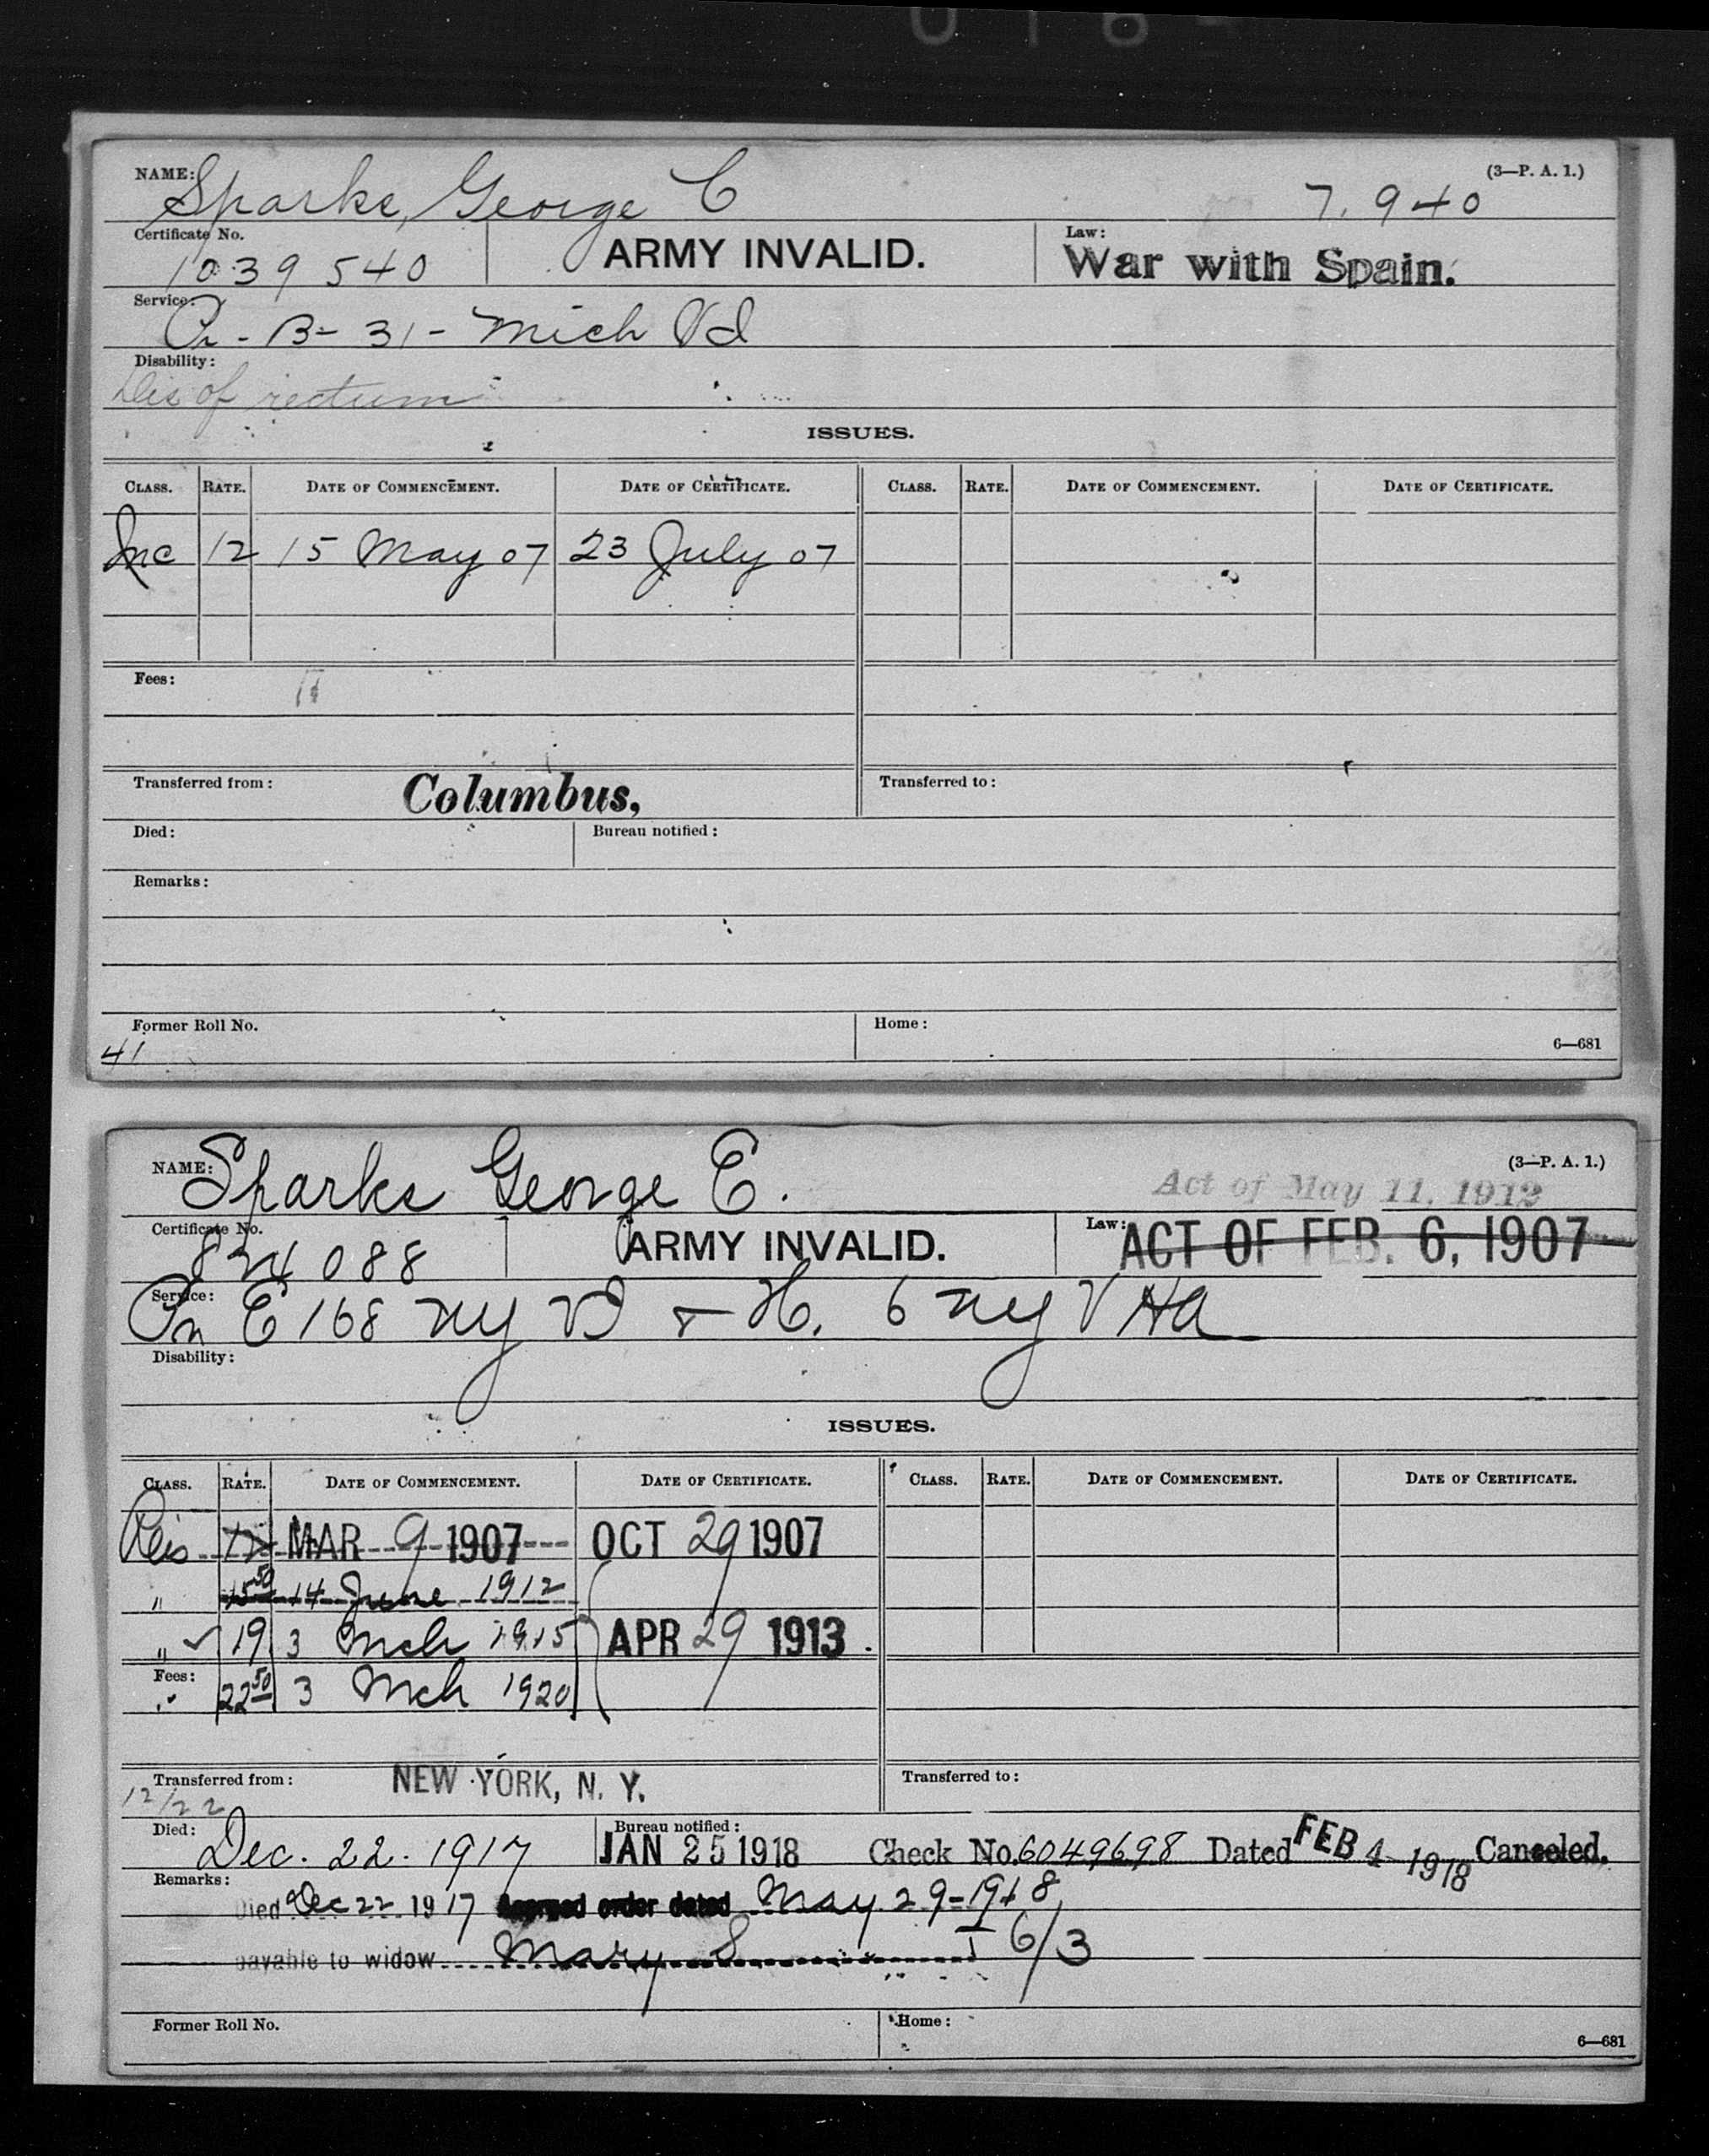 NAME: Sparks, George C (3—P. A. 1.)
7.940
Certificate No. 1039 540 ARMY INVALID. Law: War with Spain.
Service: B- 31- Mich Vol
Disability:
Dis of rectum
ISSUES.
CLASS. RATE. DATE OF COMMENCEMENT. DATE OF CERTIFICATE. CLASS. RATE. DATE OF COMMENCEMENT. DATE OF CERTIFICATE.
Inc 12 15 May 07 23 July 07
Fees:
Transferred from: Columbus, Transferred to:
Died: Bureau notified:
Remarks:
Former Roll No. Home:
41 6—681
NAME: Sparks George E. (3—P. A. 1.)
Act of May 11. 1912
Certificate No. 824 088 ARMY INVALID. Law: ACT OF FEB. 6, 1907
Service: E 168 NY VI & H. 6 NY V HA
Disability:
ISSUES.
CLASS. RATE. DATE OF COMMENCEMENT. DATE OF CERTIFICATE. CLASS. RATE. DATE OF COMMENCEMENT. DATE OF CERTIFICATE.
Reis 12 MAR 9 1907 OCT 29 1907
" 15 50 14 June 1912
" ✓ 19 3 Mch 1915 APR 29 1913
Fees: " 22 50 3 Mch 1920
Transferred from: NEW YORK, N. Y. Transferred to:
12/22
Died: Dec. 22. 1917 Bureau notified: JAN 25 1918 Check No. 6049698 Dated FEB 4 1918 Canceled.
Remarks:
Died Dec 22 1917 Accrued order dated May 29-1918
payable to widow Mary S I 6/3
Former Roll No. Home:
6—681